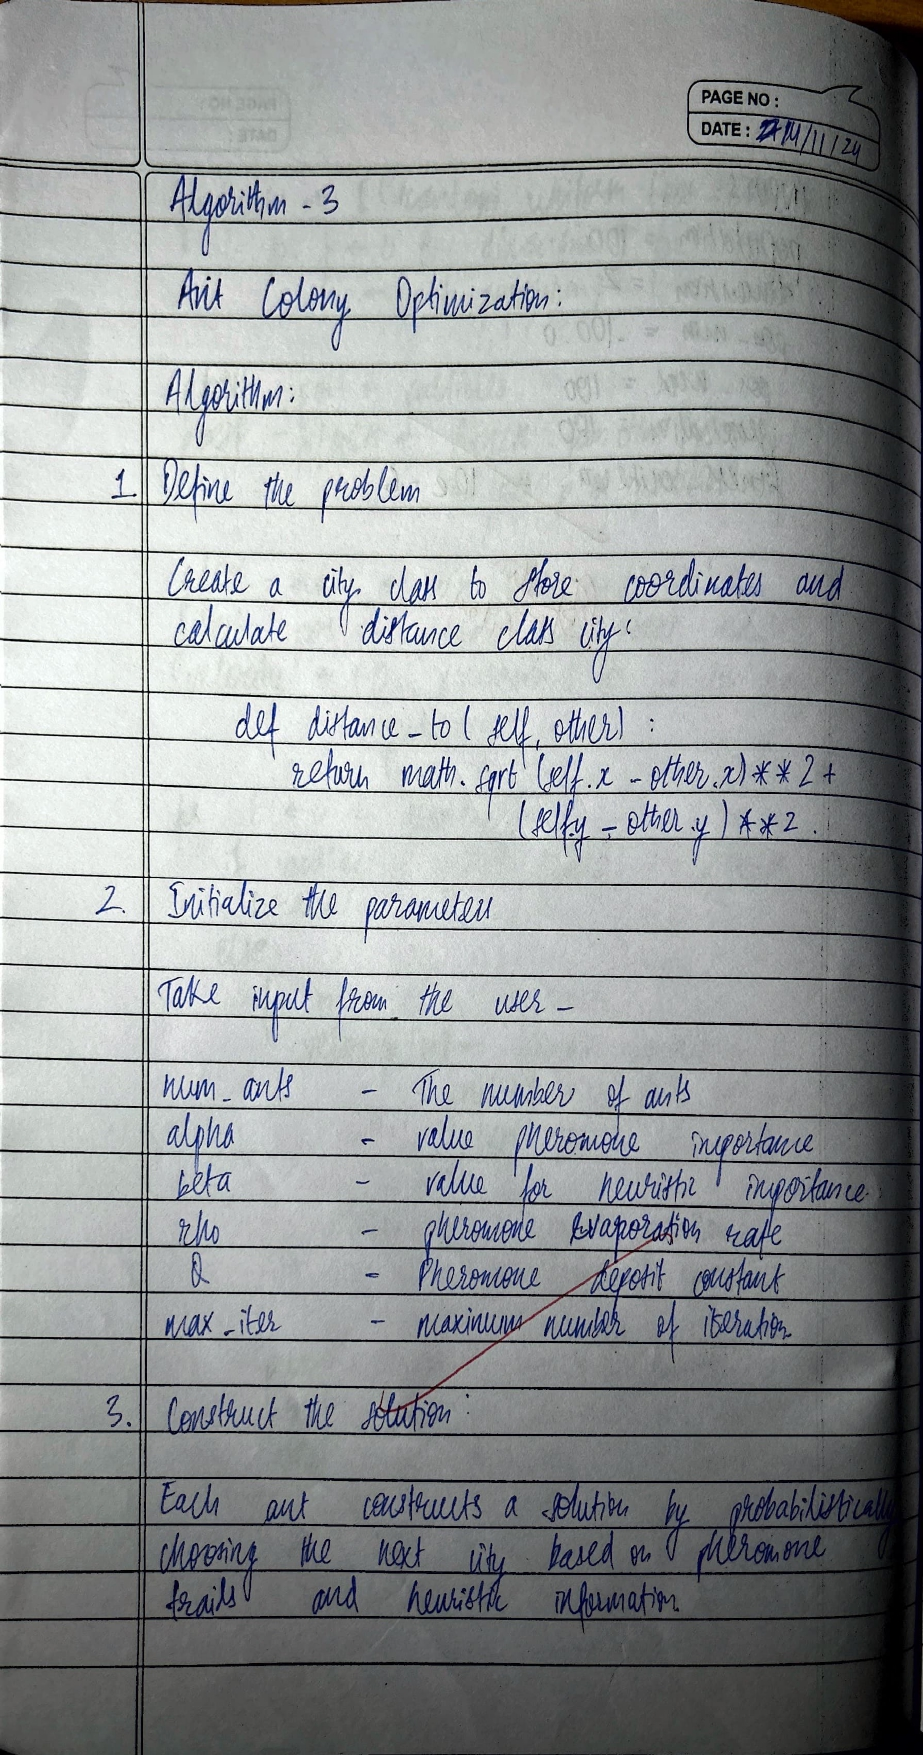 PAGE NO :
DATE : 14/11/24
Algorithm - 3
Ant Colony Optimization:
Algorithm:
1. Define the problem
Create a city class to store coordinates and
calculate distance class city:
def distance_to ( self, other) :
return math. sqrt (self.x - other.x) ** 2 +
(self.y - other.y) ** 2.
2. Initialize the parameters
Take input from the user -
num_ants - The number of ants
alpha - value pheromone importance
beta - value for heuristic importance.
rho - pheromone evaporation rate
Q - Pheromone deposit constant
max_iter - maximum number of iteration
3. Construct the solution:
Each ant constructs a solution by probabilistically
choosing the next city based on pheromone
trails and heuristic information